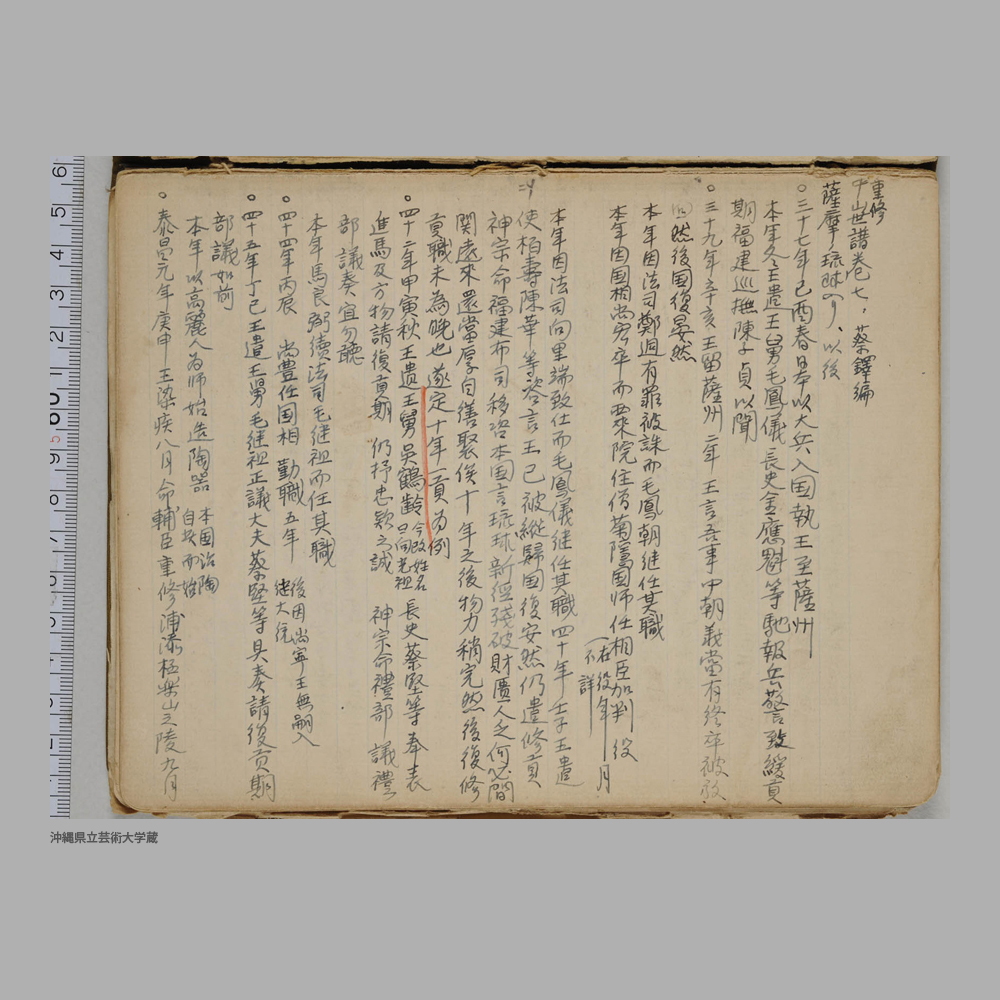 重修
中山世譜卷七、蔡鐸編
薩摩琉球入り、以後
○三十七年己酉春日本以大兵入国執王至薩州
本年冬王遣王舅毛鳳儀長史金應魁等馳報兵警致緩貢
期福建巡撫陳子貞以聞
○三十九年辛亥王留薩州二年王言吾事中朝義當有終卒被放
然後国復晏然
本年因法司鄭迵有罪被誅而毛鳳朝継任其職
本年因国相尚宏卒而西来院住僧菊隠国師任相臣加判役
(在役年月
不詳
本年因法司向里端致仕而毛鳳儀継任其職四十年壬子王遣
使栢壽陳華等咨言王已被縦歸国復安然仍遣修貢
神宗命福建布司移咨本国言琉球新経残破財匱人乏何必間
関遠來還當厚自繕聚俟十年之後物力稍完然後復修
貢職未為晩也遂定十年一貢為例
○四十二年甲寅秋王遣王舅吳鶴齡今改姓名曰向鶴祖長史蔡堅等奉表
進馬及方物請復貢期仍抒忠欵之誠 神宗命禮部議禮
部議奏宜勿聽
本年馬良弼續法司毛継祖而任其職
○四十四年丙辰 尚豊任国相勤職五年後因尚寧王無嗣入継大統
○四十五年丁巳王遣王舅毛継祖正議大夫蔡堅等具奏請復貢期
部議如前
本年以高麗人為师始造陶器本国治陶自茲而始
○泰昌元年庚申王染疾八月命輔臣重修浦添極樂山之陵九月
沖縄県立芸術大学蔵